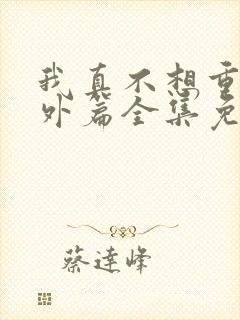 我真不想重
外篇全集免
蔡达峰